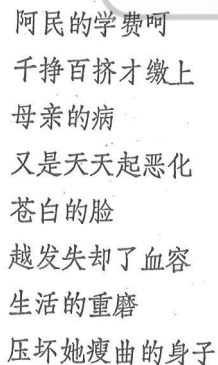 阿民的学费呵
千挣百挤才缴上
母亲的病
又是天天起恶化
苍白的脸
越发失却了血容
生活的重磨
压坏她瘦曲的身子